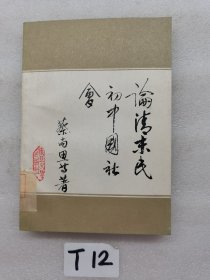 論清末民
初中國社
會
蔡尚思等著
T12